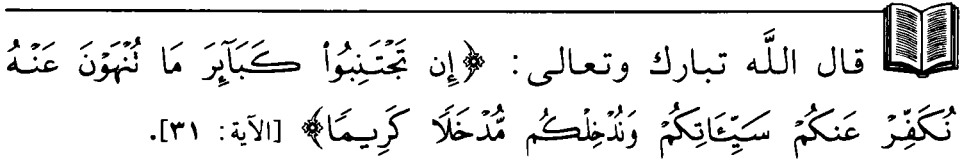 قال اللَّه تبارك وتعالى: ﴿إِن تَجْتَنِبُواْ كَبَآئِرَ مَا نُنْهَوْنَ عَنْهُ
نُكَفِّرْ عَنكُمْ سَيِّئَاتِكُمْ وَنُدْخِلْكُم مُّدْخَلًا كَرِيمًا﴾ [الآية: ٣١].